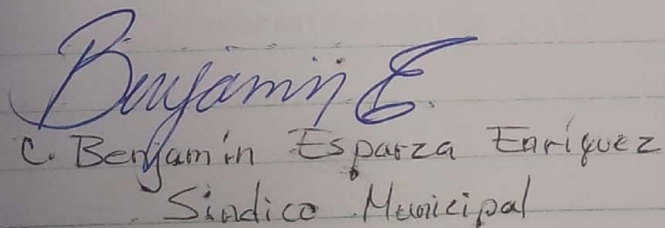 Benjamin E.
C. Benjamín Esparza Enríquez
Sindico Municipal